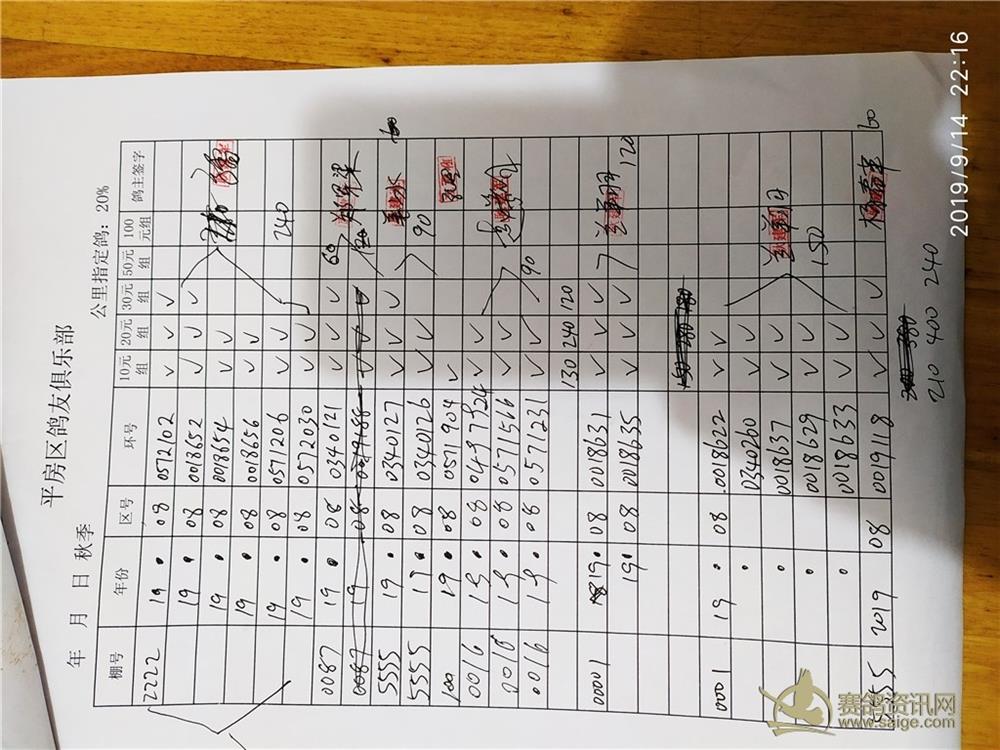 平房区鸽友俱乐部
年 月 日 秋季 公里指定鸽：20%
棚号 年份 区号 环号 10元组 20元组 30元组 50元组 100元组 鸽主签字
2222 19 08 0572102 ✓ ✓ ✓
19 08 0018652 ✓ ✓ ✓
19 08 0018654 ✓ ✓
19 08 0018656 ✓ ✓
19 08 0571206 ✓ ✓ 240
19 08 0572030 ✓ ✓
0087 19 08 0340121 ✓ ✓ ✓ 60
5555 19 08 0340127 ✓ ✓ ✓
5555 17 08 0340126 ✓ ✓ 90
100 19 08 0571904 ✓
0016 19 08 0497924 ✓ ✓
0016 19 08 0571566 ✓ ✓
0016 19 08 0571231 ✓ ✓ 90
130 240 120
0001 19 08 0018631 ✓ ✓ ✓
19 08 0018635 ✓ ✓ ✓ 120
0001 19 08 0018622 ✓ ✓
0340260 ✓ ✓
0018637 ✓ ✓
0018629 ✓ ✓ 150
0018633 ✓ ✓
5555 2019 08 0019118 ✓ ✓ ✓ 60
210 400 240
2019/9/14 22:16
赛鸽资讯网
www.saige.com